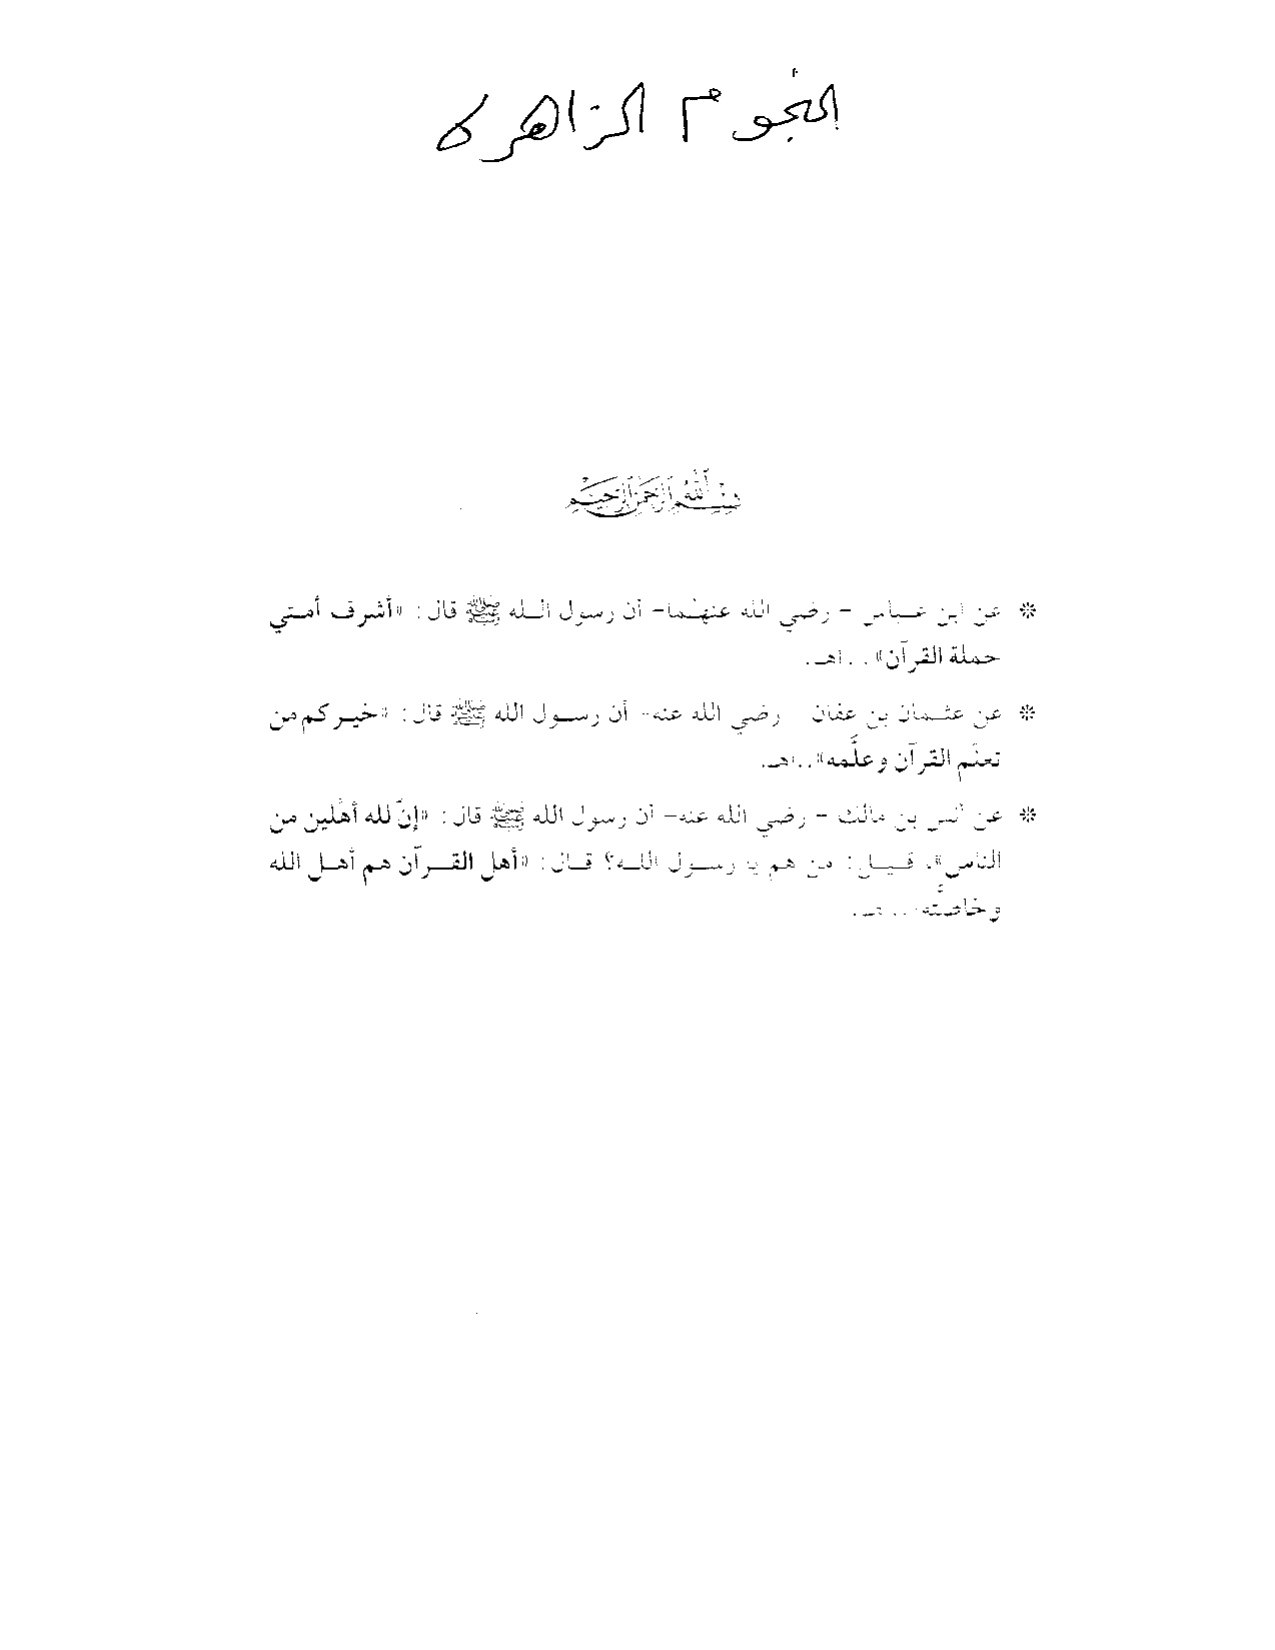 النجوم الزاهرة
بسم الله الرحمن الرحيم
❊ عن ابن عباس - رضي الله عنهما- أن رسول الله ﷺ قال: «أشرف أمتي
حملة القرآن»..اهـ.
❊ عن عثمان بن عفان رضي الله عنه- أن رسول الله ﷺ قال: «خيركم من
تعلّم القرآن وعلَّمه»..اهـ.
❊ عن أنس بن مالك - رضي الله عنه- أن رسول الله ﷺ قال: «إنّ لله أهلين من
الناس». قيل: من هم يا رسول الله؟ قال: «أهل القرآن هم أهل الله
وخاصَّته»..اهـ.